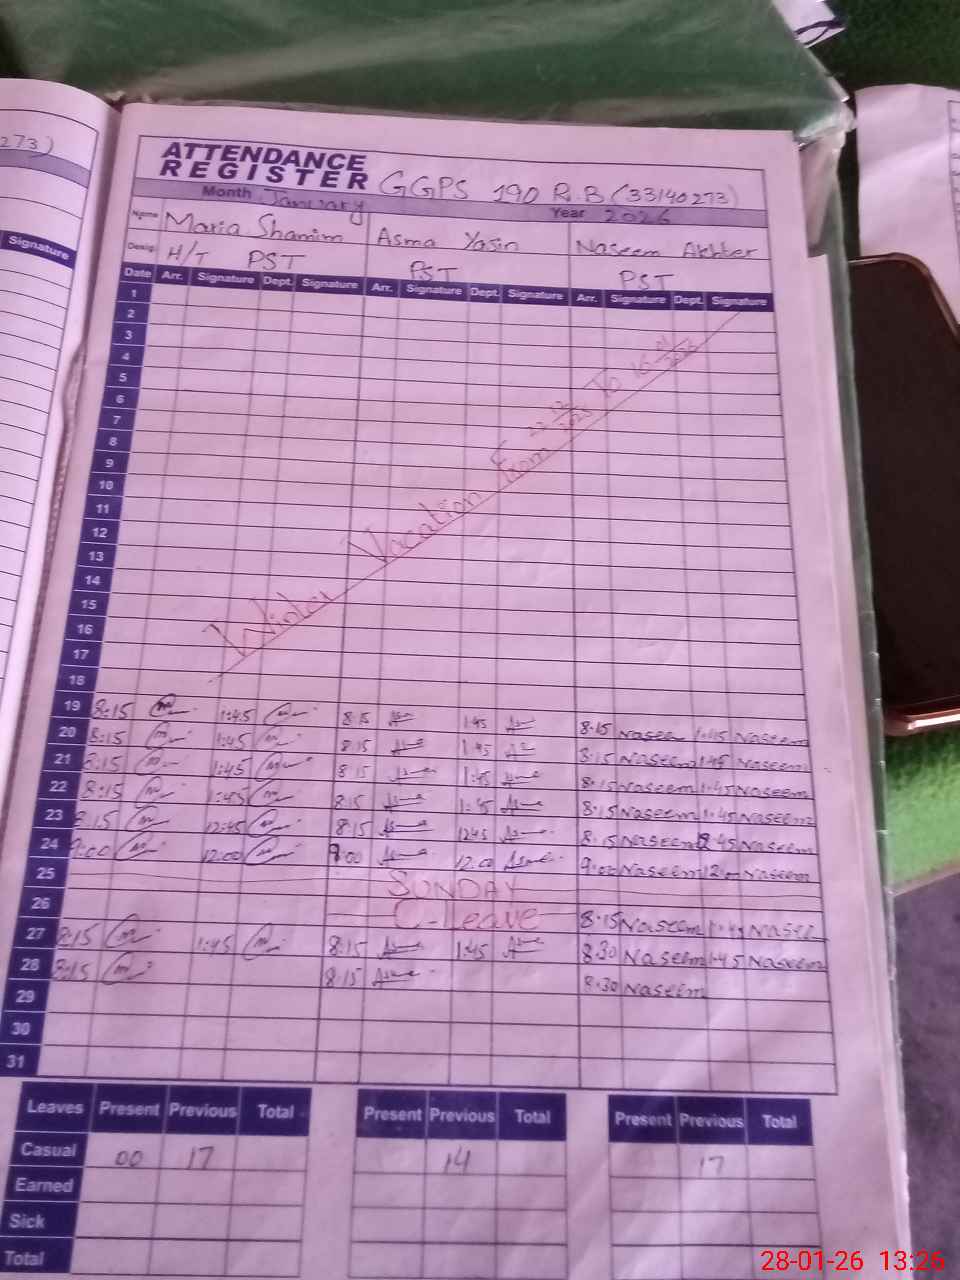 273)
Signature
ATTENDANCE
REGISTER GGPS 190 R.B (33140273)
Month January Year 2026
Name Maria Shamim Asma Yasin Naseem Akhter
Desig. H/T PST PST PST
Date Arr. Signature Dept. Signature Arr. Signature Dept. Signature Arr. Signature Dept. Signature
1
2
3
4
5
6
7
8
9
10
11
12
13
14
15
16
17
18
Winter Vacation From To
19 8:15 1:45 8:15 1:45 8:15 Naseem 1:45 Naseem
20 8:15 1:45 8:15 1:45 8:15 Naseem 1:45 Naseem
21 8:15 1:45 8:15 1:45 8:15 Naseem 1:45 Naseem
22 8:15 1:45 8:15 1:45 8:15 Naseem 1:45 Naseem
23 8:15 12:45 8:15 12:45 8:15 Naseem 45 Naseem
24 9:00 12:00 9:00 12:00 9:00 Naseem 12:00 Naseem
25 SUNDAY
26 C-Leave 8:15 Naseem 1:45 Naseem
27 8:15 1:45 8:15 1:45 8:30 Naseem 1:45 Naseem
28 8:15 8:15 8:30 Naseem
29
30
31
Leaves Present Previous Total Present Previous Total Present Previous Total
Casual 00 17 14 17
Earned
Sick
Total
28-01-26 13:26